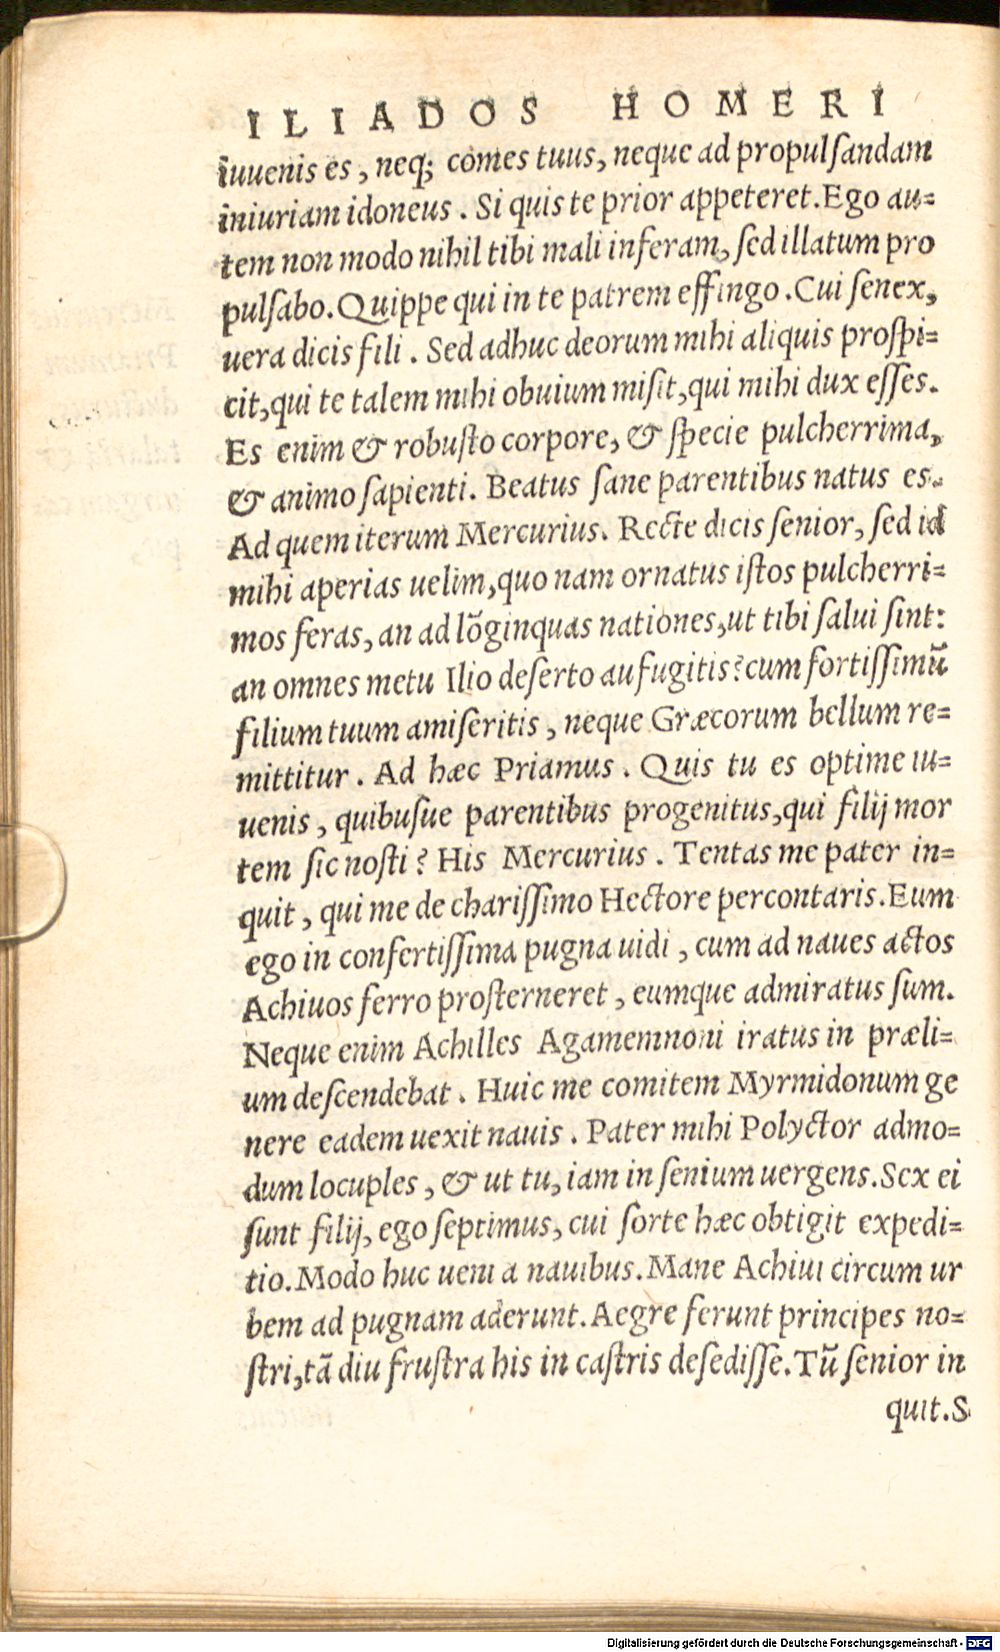 ILIADOS HOMERI
iuuenis es, neq; comes tuus, neque ad propulſandam
iniuriam idoneus. Si quis te prior appeteret. Ego au=
tem non modo nihil tibi mali inferam, ſed illatum pro
pulſabo. Quippe qui in te patrem effingo. Cui ſenex,
uera dicis fili. Sed adhuc deorum mihi aliquis proſpi=
cit, qui te talem mihi obuium miſit, qui mihi dux eſſes.
Es enim & robuſto corpore, & ſpecie pulcherrima,
& animo ſapienti. Beatus ſane parentibus natus es.
Ad quem iterum Mercurius. Recte dicis ſenior, ſed id
mihi aperias uelim, quo nam ornatus iſtos pulcherri=
mos feras, an ad lōginquas nationes, ut tibi ſalui ſint:
an omnes metu Ilio deſerto aufugitis? cum fortiſſimū
filium tuum amiſeritis, neque Græcorum bellum re=
mittitur. Ad hæc Priamus. Quis tu es optime iu=
uenis, quibuſue parentibus progenitus, qui filij mor
tem ſic noſti? His Mercurius. Tentas me pater in=
quit, qui me de chariſſimo Hectore percontaris. Eum
ego in confertiſſima pugna uidi, cum ad naues actos
Achiuos ferro proſterneret, eumque admiratus ſum.
Neque enim Achilles Agamemnoni iratus in præli=
um deſcendebat. Huic me comitem Myrmidonum ge
nere eadem uexit nauis. Pater mihi Polyctor admo=
dum locuples, & ut tu, iam in ſenium uergens. Sex ei
ſunt filij, ego ſeptimus, cui ſorte hæc obtigit expedi=
tio. Modo huc ueni a nauibus. Mane Achiui circum ur
bem ad pugnam aderunt. Aegre ferunt principes no=
ſtri, tā diu fruſtra his in caſtris deſediſſe. Tū ſenior in
quit. S
Digitalisierung gefördert durch die Deutsche Forschungsgemeinschaft - DFG